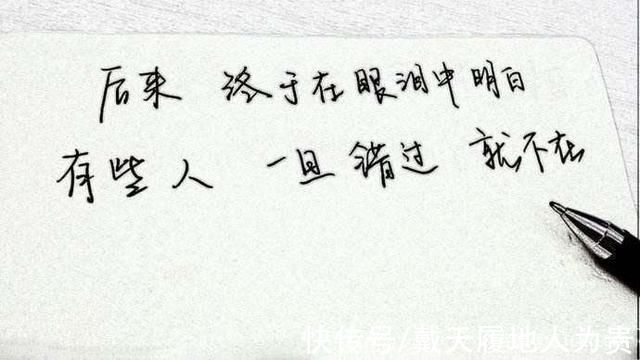 后来 终于在眼泪中明白
有些人 一旦错过 就不在
快传号/戴天履地人为贵